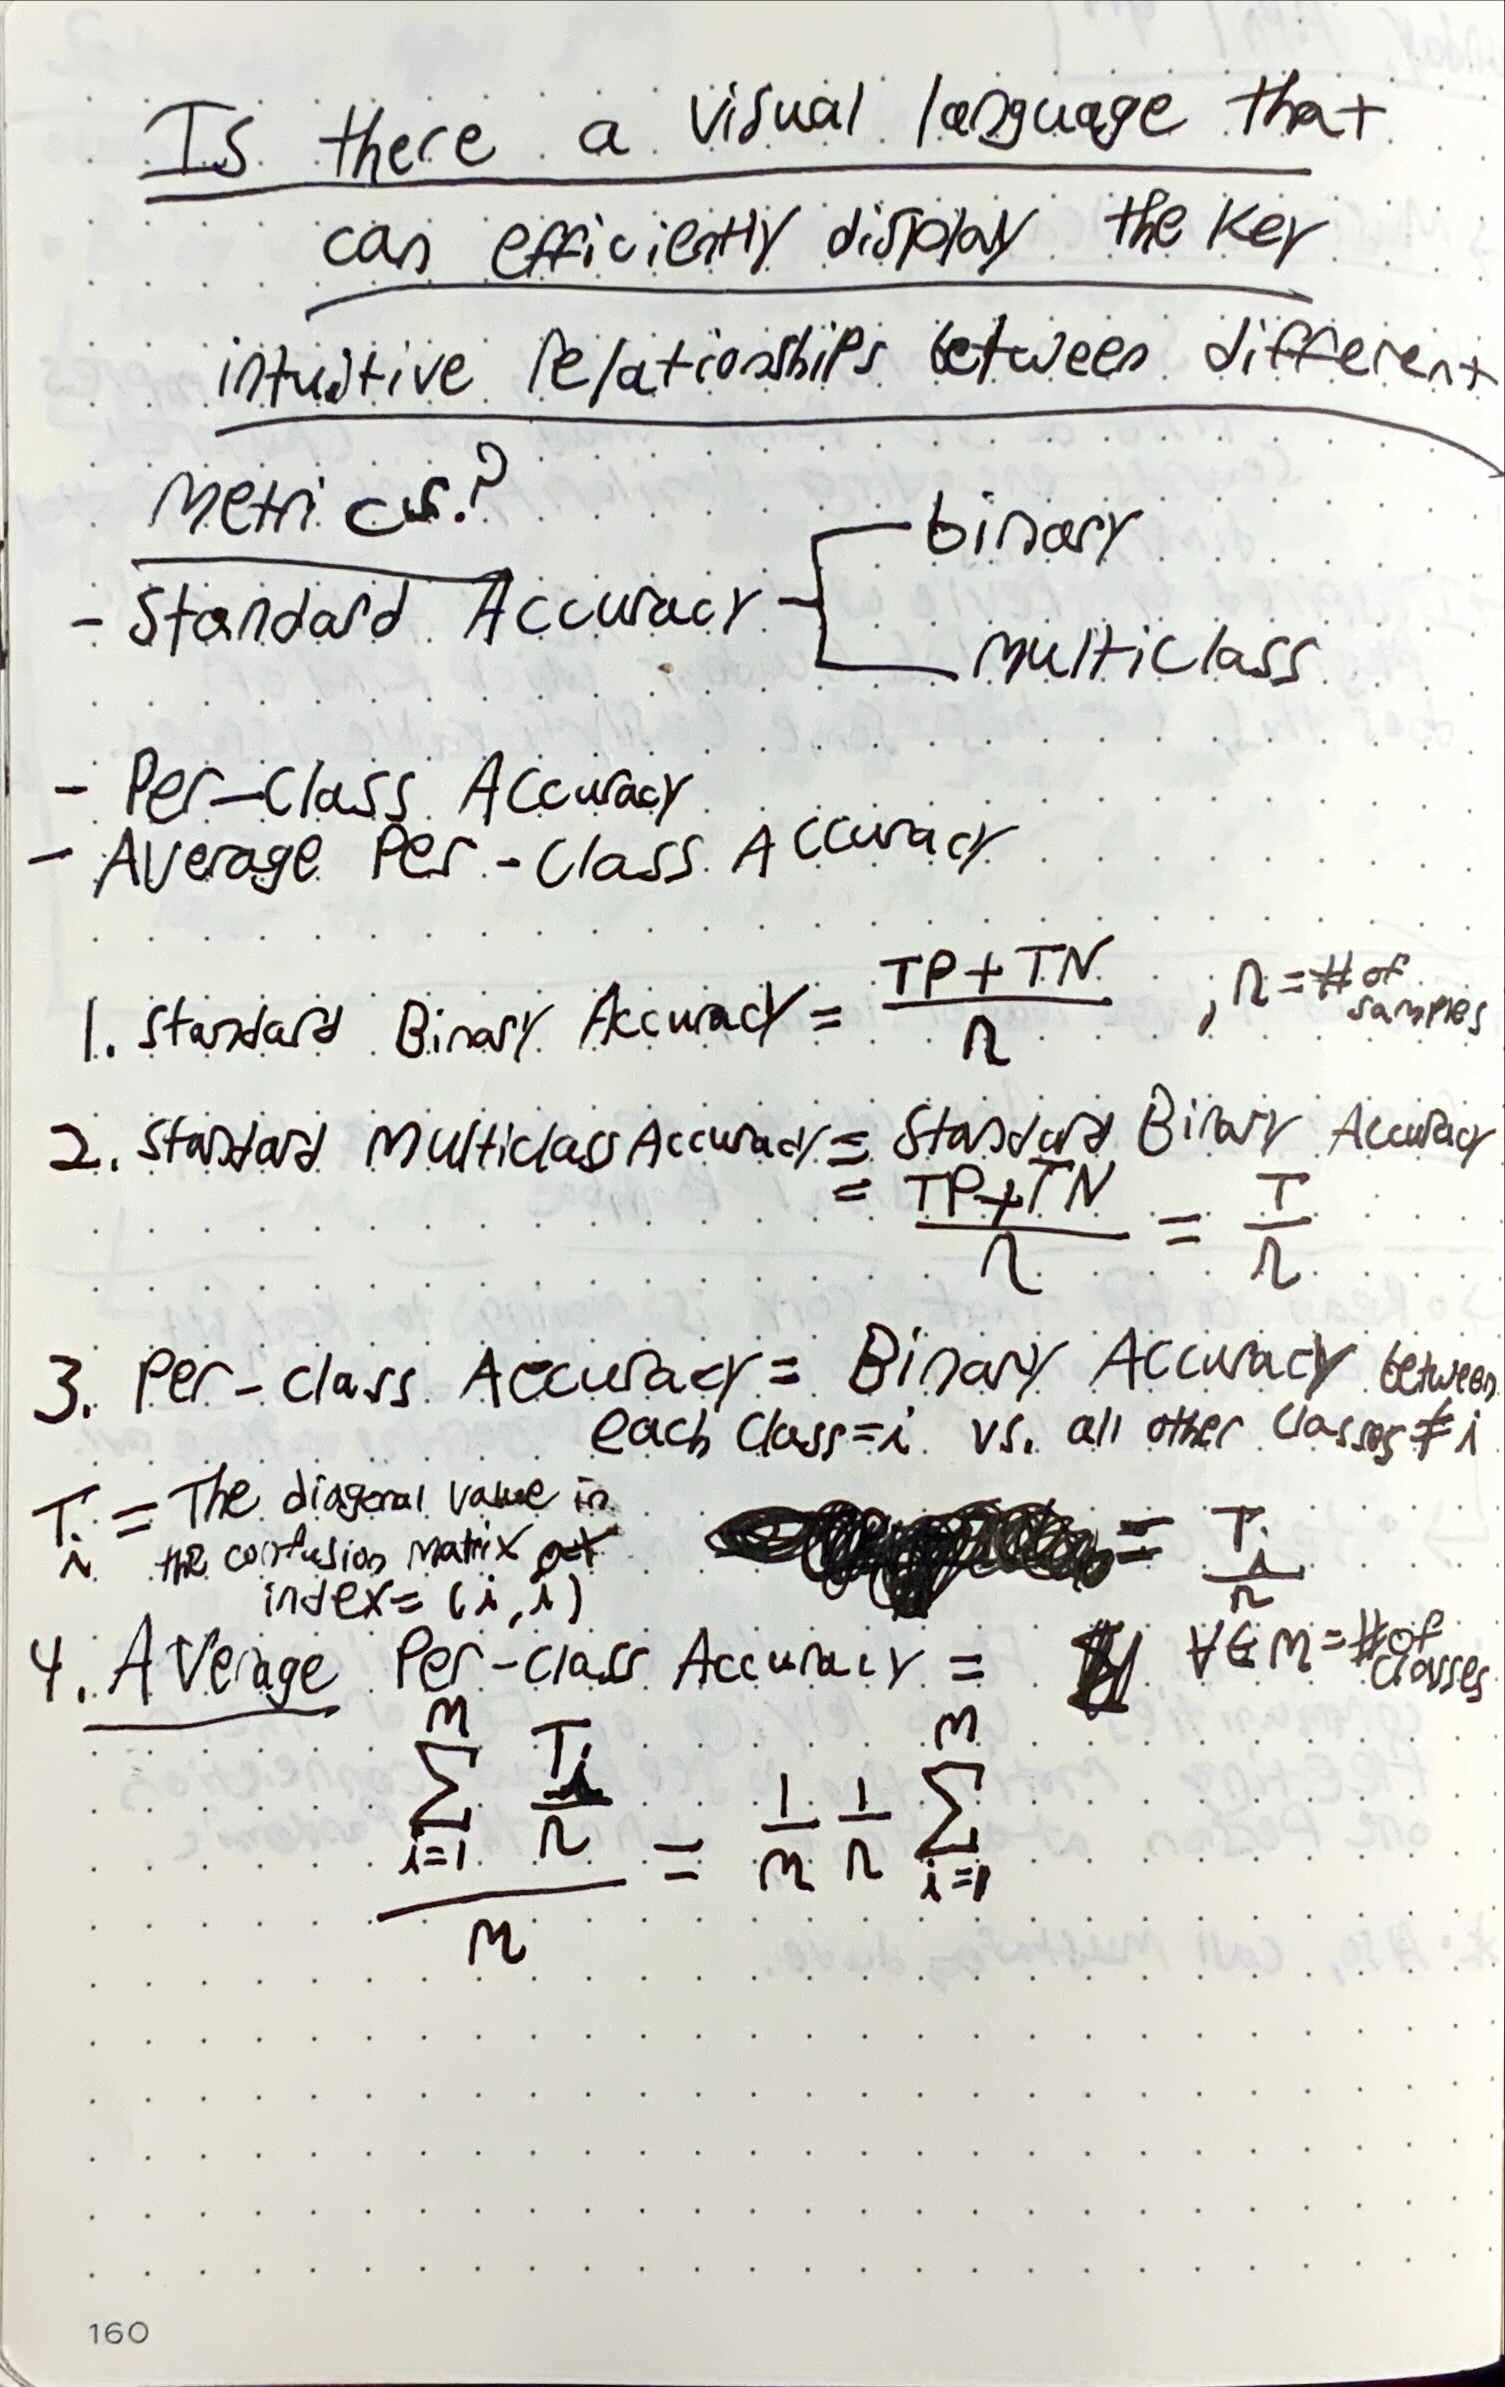 Is there a visual language that
can efficiently display the key
intuitive relationships between different
metrics?
- Standard Accuracy
binary
multiclass
- Per-Class Accuracy
- Average Per-Class Accuracy
1. Standard Binary Accuracy = (TP+TN)/n ; n = # of samples
2. Standard Multiclass Accuracy = Standard Binary Accuracy
= (TP+TN)/n = T/n
3. Per-class Accuracy = Binary Accuracy between
each class=i vs. all other classes≠i
T_i = The diagonal value in
the confusion matrix at
index=(i,i)
= T_i/n
∀ ∈ m = # of classes
4. Average Per-class Accuracy =
(∑_{i=1}^{m} T_i/n)/m = 1/m 1/n ∑_{i=1}^{m}
160